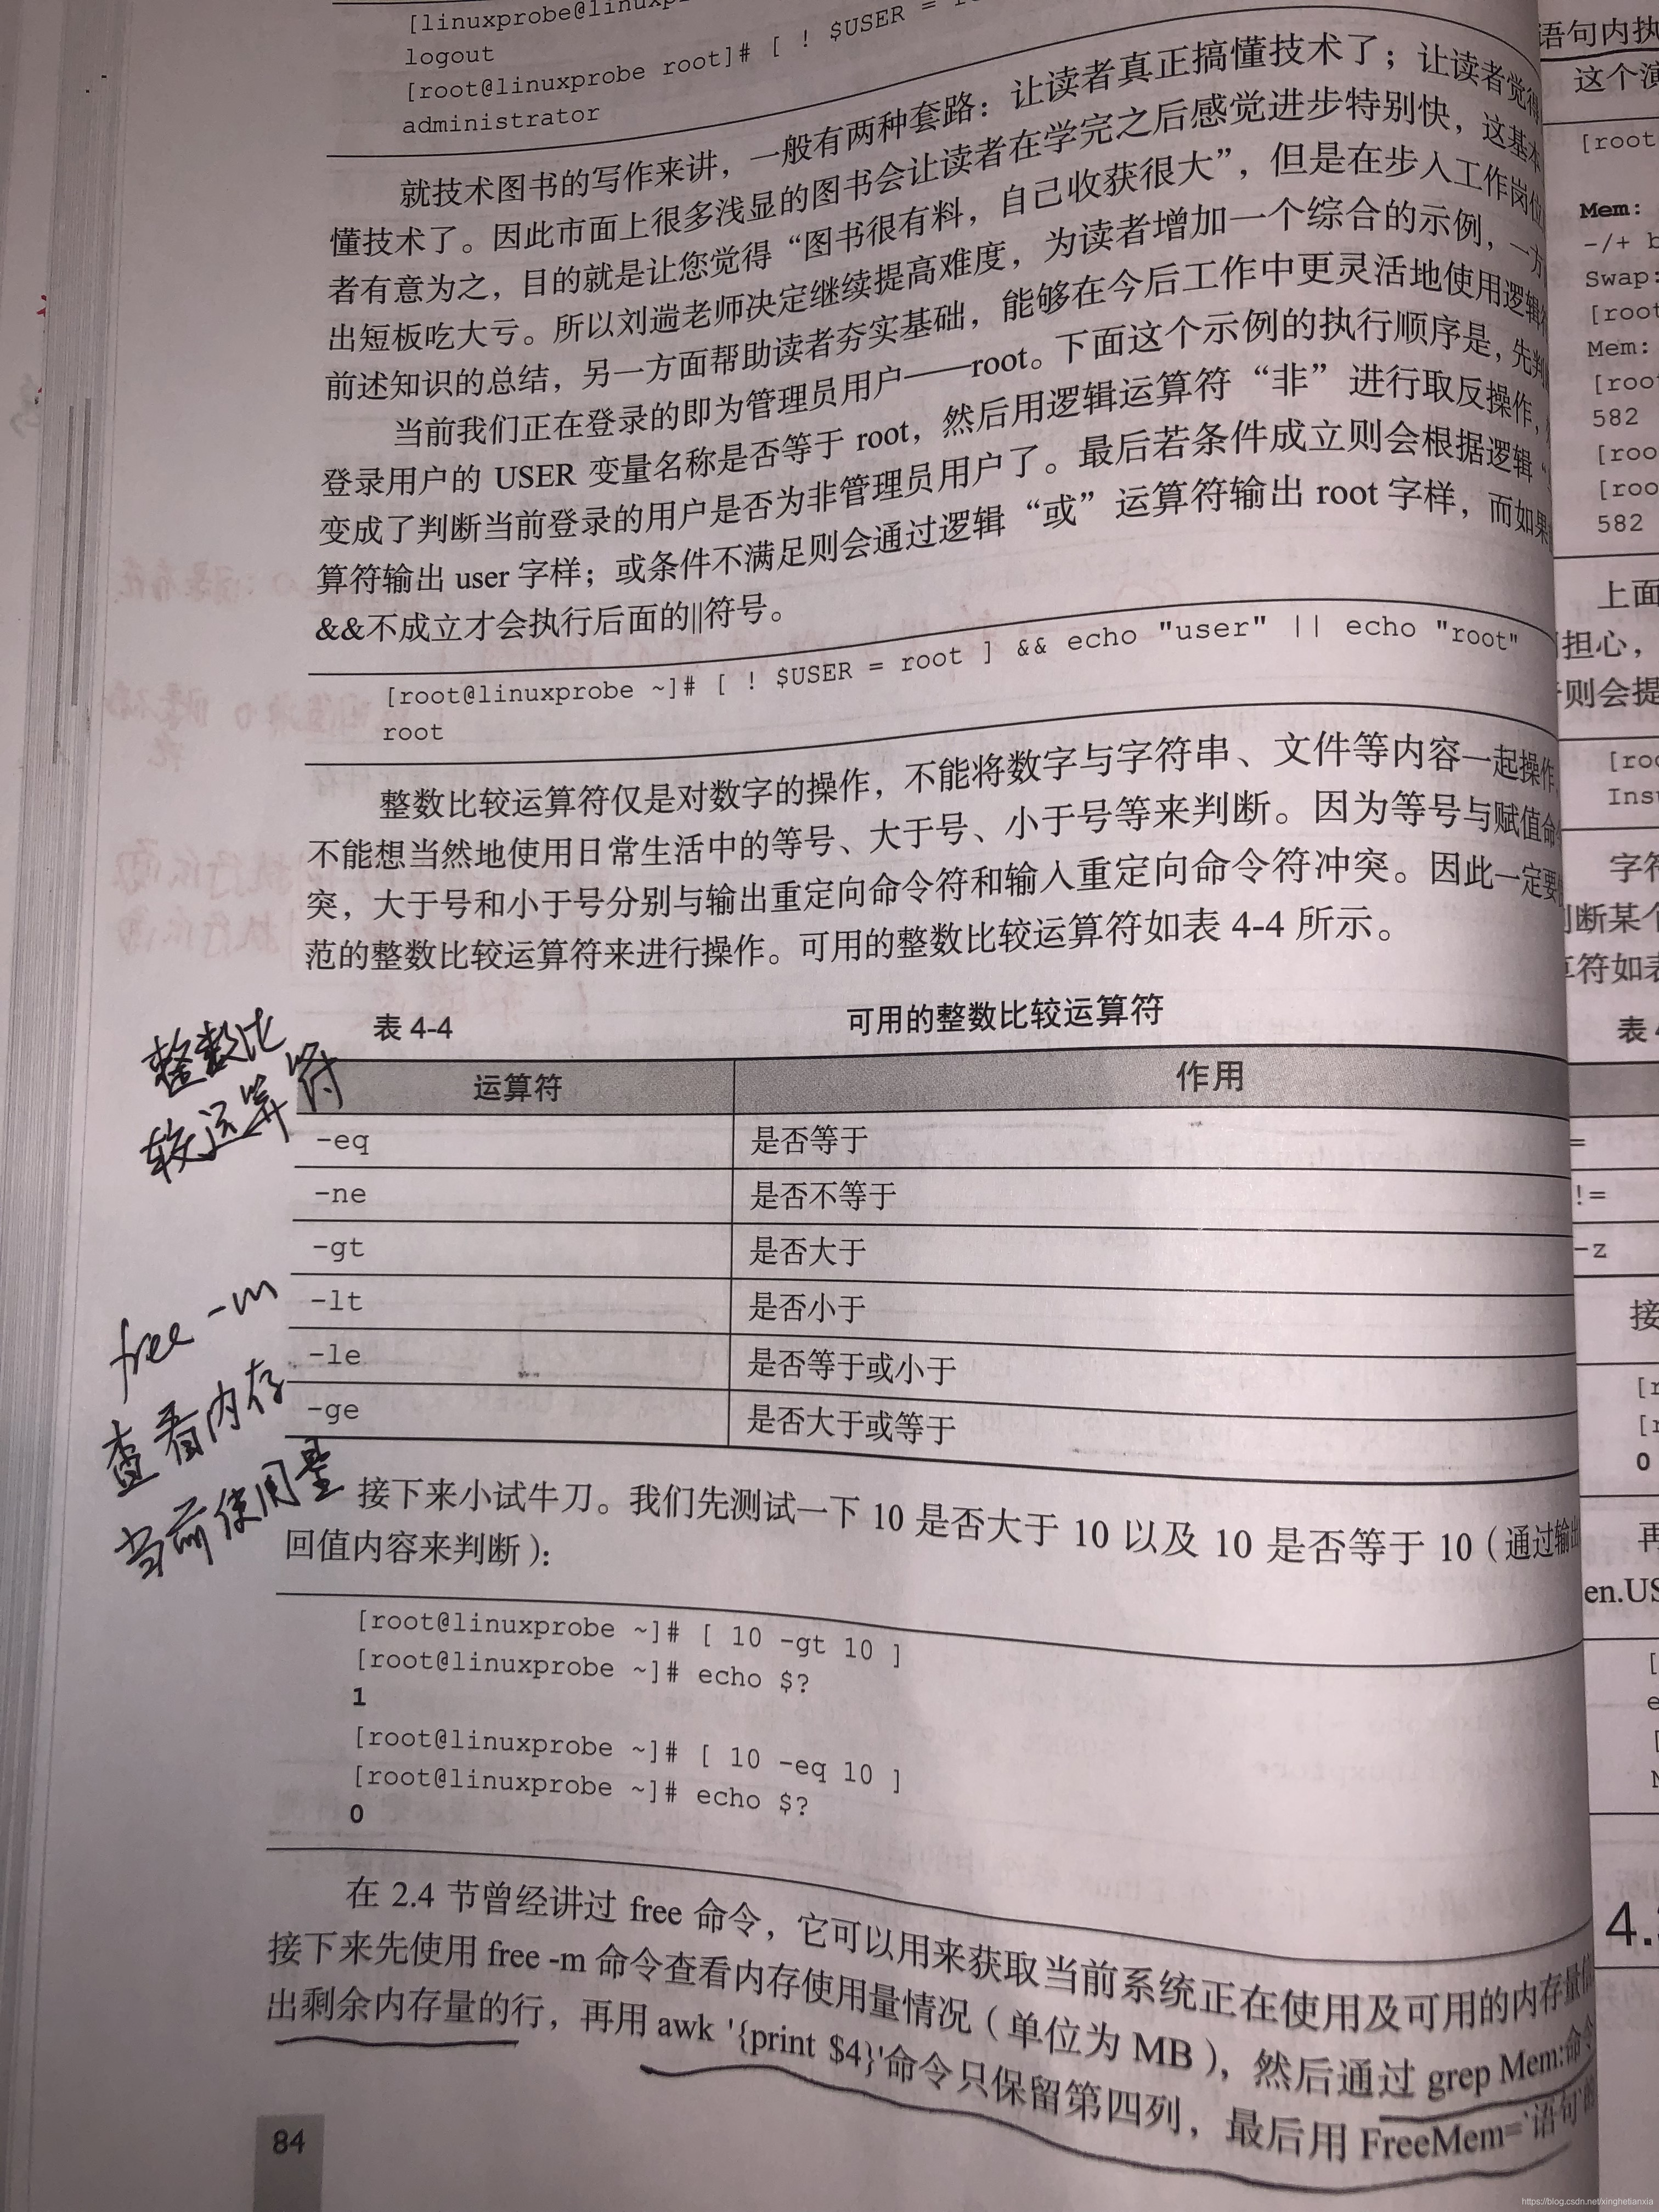 [linuxprobe@linuxp
logout
[root@linuxprobe root]# [ ! $USER =
administrator
就技术图书的写作来讲，一般有两种套路：让读者真正搞懂技术了；让读者觉得
懂技术了。因此市面上很多浅显的图书会让读者在学完之后感觉进步特别快，这基本
者有意为之，目的就是让您觉得“图书很有料，自己收获很大”，但是在步入工作岗位
出短板吃大亏。所以刘遄老师决定继续提高难度，为读者增加一个综合的示例，一方
前述知识的总结，另一方面帮助读者夯实基础，能够在今后工作中更灵活地使用逻辑符
当前我们正在登录的即为管理员用户——root。下面这个示例的执行顺序是，先判
登录用户的 USER 变量名称是否等于 root，然后用逻辑运算符“非”进行取反操作，
变成了判断当前登录的用户是否为非管理员用户了。最后若条件成立则会根据逻辑“
算符输出 user 字样；或条件不满足则会通过逻辑“或”运算符输出 root 字样，而如果
&&不成立才会执行后面的||符号。
[root@linuxprobe ~]# [ ! $USER = root ] && echo "user" || echo "root"
root
整数比较运算符仅是对数字的操作，不能将数字与字符串、文件等内容一起操作
不能想当然地使用日常生活中的等号、大于号、小于号等来判断。因为等号与赋值命
突，大于号和小于号分别与输出重定向命令符和输入重定向命令符冲突。因此一定要
范的整数比较运算符来进行操作。可用的整数比较运算符如表 4-4 所示。
整数比
较运算符
表 4-4 可用的整数比较运算符
运算符 作用
-eq 是否等于
-ne 是否不等于
-gt 是否大于
-lt 是否小于
-le 是否等于或小于
-ge 是否大于或等于
free -m
查看内存
当前使用量
接下来小试牛刀。我们先测试一下 10 是否大于 10 以及 10 是否等于 10（通过输出
回值内容来判断）：
[root@linuxprobe ~]# [ 10 -gt 10 ]
[root@linuxprobe ~]# echo $?
1
[root@linuxprobe ~]# [ 10 -eq 10 ]
[root@linuxprobe ~]# echo $?
0
在 2.4 节曾经讲过 free 命令，它可以用来获取当前系统正在使用及可用的内存量信
接下来先使用 free -m 命令查看内存使用量情况（单位为 MB），然后通过 grep Mem:命令
出剩余内存量的行，再用 awk '{print $4}'命令只保留第四列，最后用 FreeMem=`语句`的
84
语句内执
这个演
[root
Mem:
-/+ b
Swap:
[root
Mem:
[root
582
[roo
[roo
582
上面
担心，
则会提
[roo
Ins
字符
断某个
符如表
表 4
=
!=
-z
接
[r
[r
0
再
en.US
[
e
[
N
4.
https://blog.csdn.net/xinghetianxia